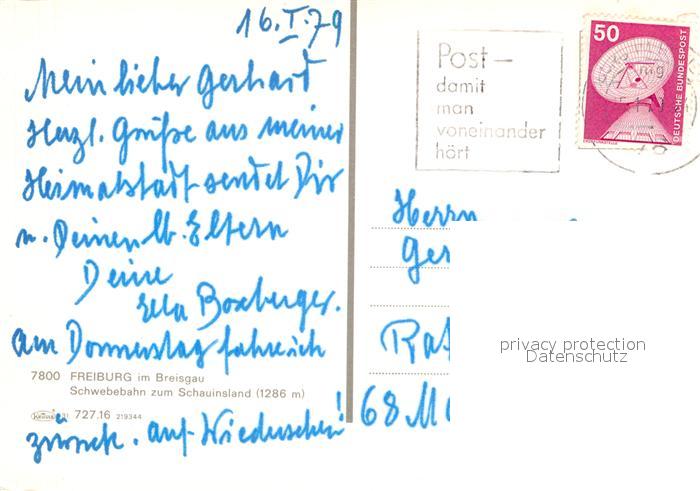 16.I.79
Mein lieber Gerhard
Herzl. Grüße aus meiner
Heimatstadt sendet Dir
u. Deinen lb. Eltern
Deine
Ella Boxberger.
Am Donnerstag fahre ich
zurück. Auf Wiedersehen!
7800 FREIBURG im Breisgau
Schwebebahn zum Schauinsland (1286 m)
727.16 219344
Post –
damit
man
voneinander
hört
50
DEUTSCHE BUNDESPOST
Herrn
Ger
68 M
privacy protection
Datenschutz